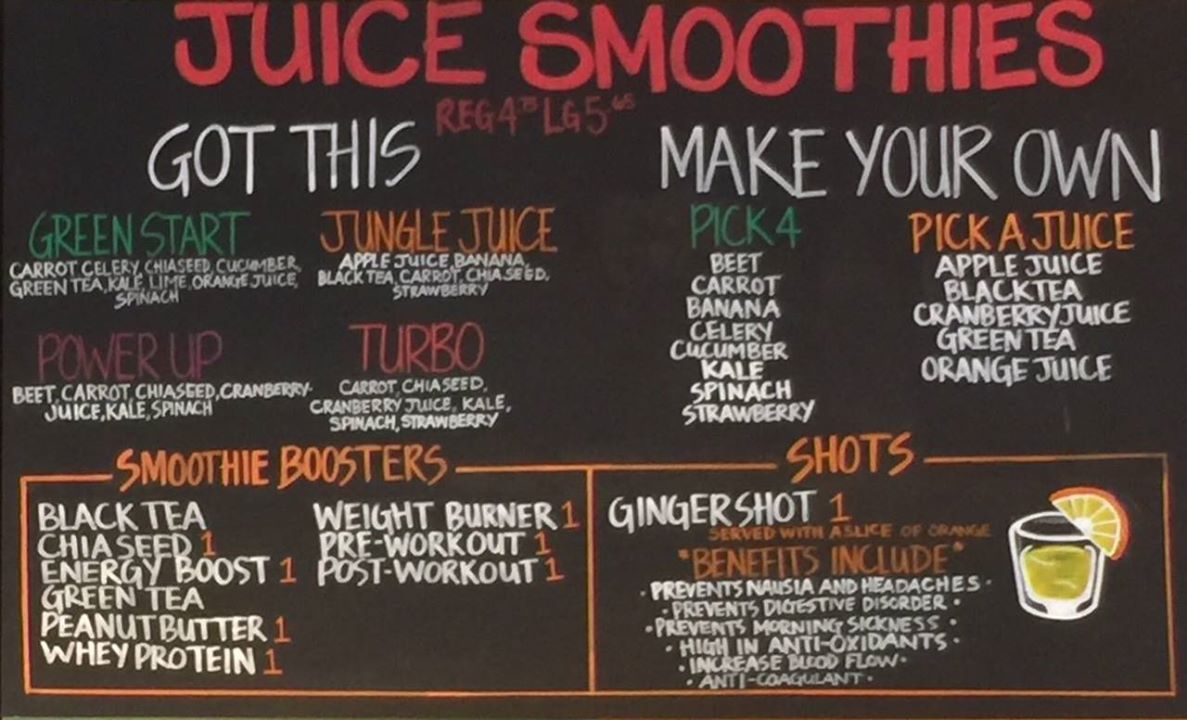 JUICE SMOOTHIES
REG 4 LG 5
GOT THIS
GREEN START
CARROT CELERY, CHIASEED, CUCUMBER,
GREEN TEA, KALE, LIME, ORANGE JUICE,
SPINACH
JUNGLE JUICE
APPLE JUICE, BANANA,
BLACK TEA, CARROT, CHIA SEED,
STRAWBERRY
POWER UP
BEET, CARROT, CHIASEED, CRANBERRY-
JUICE, KALE, SPINACH
TURBO
CARROT, CHIASEED,
CRANBERRY JUICE, KALE,
SPINACH, STRAWBERRY
MAKE YOUR OWN
PICK 4
BEET
CARROT
BANANA
CELERY
CUCUMBER
KALE
SPINACH
STRAWBERRY
PICK A JUICE
APPLE JUICE
BLACK TEA
CRANBERRY JUICE
GREEN TEA
ORANGE JUICE
SMOOTHIE BOOSTERS
BLACK TEA
CHIA SEED 1
ENERGY BOOST 1
GREEN TEA
PEANUT BUTTER 1
WHEY PROTEIN 1
WEIGHT BURNER 1
PRE-WORKOUT 1
POST-WORKOUT 1
SHOTS
GINGER SHOT 1
SERVED WITH A SLICE OF ORANGE
*BENEFITS INCLUDE*
• PREVENTS NAUSIA AND HEADACHES •
• PREVENTS DIGESTIVE DISORDER •
• PREVENTS MORNING SICKNESS •
• HIGH IN ANTI-OXIDANTS •
• INCREASE BLOOD FLOW •
• ANTI-COAGULANT •